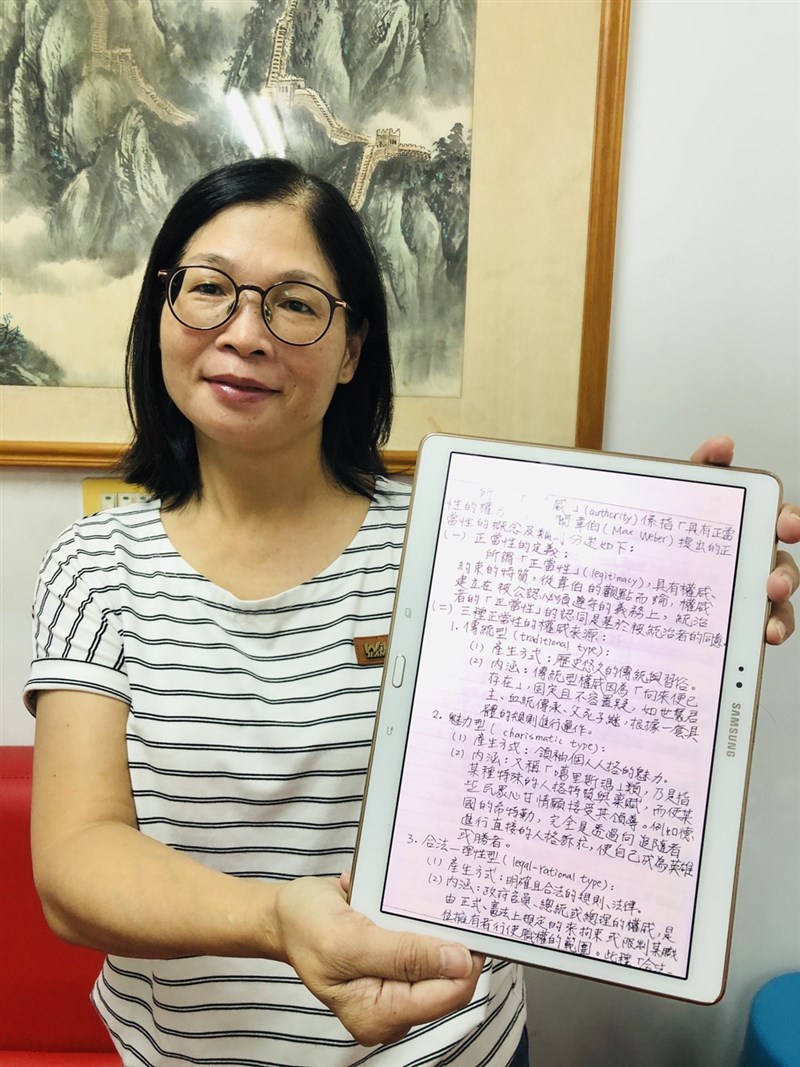 所 威」(authority)係指「具有正當
性的權 閱韋伯(Max Weber)提出的正
當性的概念及類 分述如下:
(一)正當性的定義:
所謂「正當性」(legitimacy),具有權威、
約束的特質,從韋伯的觀點而論,權威
建立在被公認必須遵守的義務上,統治
者的「正當性」的認同是基於被統治者的同意。
(二)三種正當性的權威來源:
1.傳統型(traditional type):
(1)產生方式:歷史悠久的傳統與習俗。
(2)內涵:傳統型權威因為「向來便已
存在」,固定且不容置疑,如世襲君
主、血統傳承、父死子繼,根據一套具
體的規則進行運作。
2.魅力型(charismatic type):
(1)產生方式:領袖個人人格的魅力。
(2)內涵:又稱「嘎里斯瑪」類,乃是指
某種特殊的人格特質與稟賦,而使某
些民眾心甘情願接受其領導。例如德
國的希特勒,完全是透過向追隨者
進行直接的人格訴求,使自己成為英雄
或勝者。
3.合法—理性型(legal-rational type):
(1)產生方式:明確且合法的規則、法律。
(2)內涵:政府官員、總統或總理的權威,是
由正式、憲法上規定的來拘束或限制某職
位擁有者行使職權的範圍。此種「合法
SAMSUNG